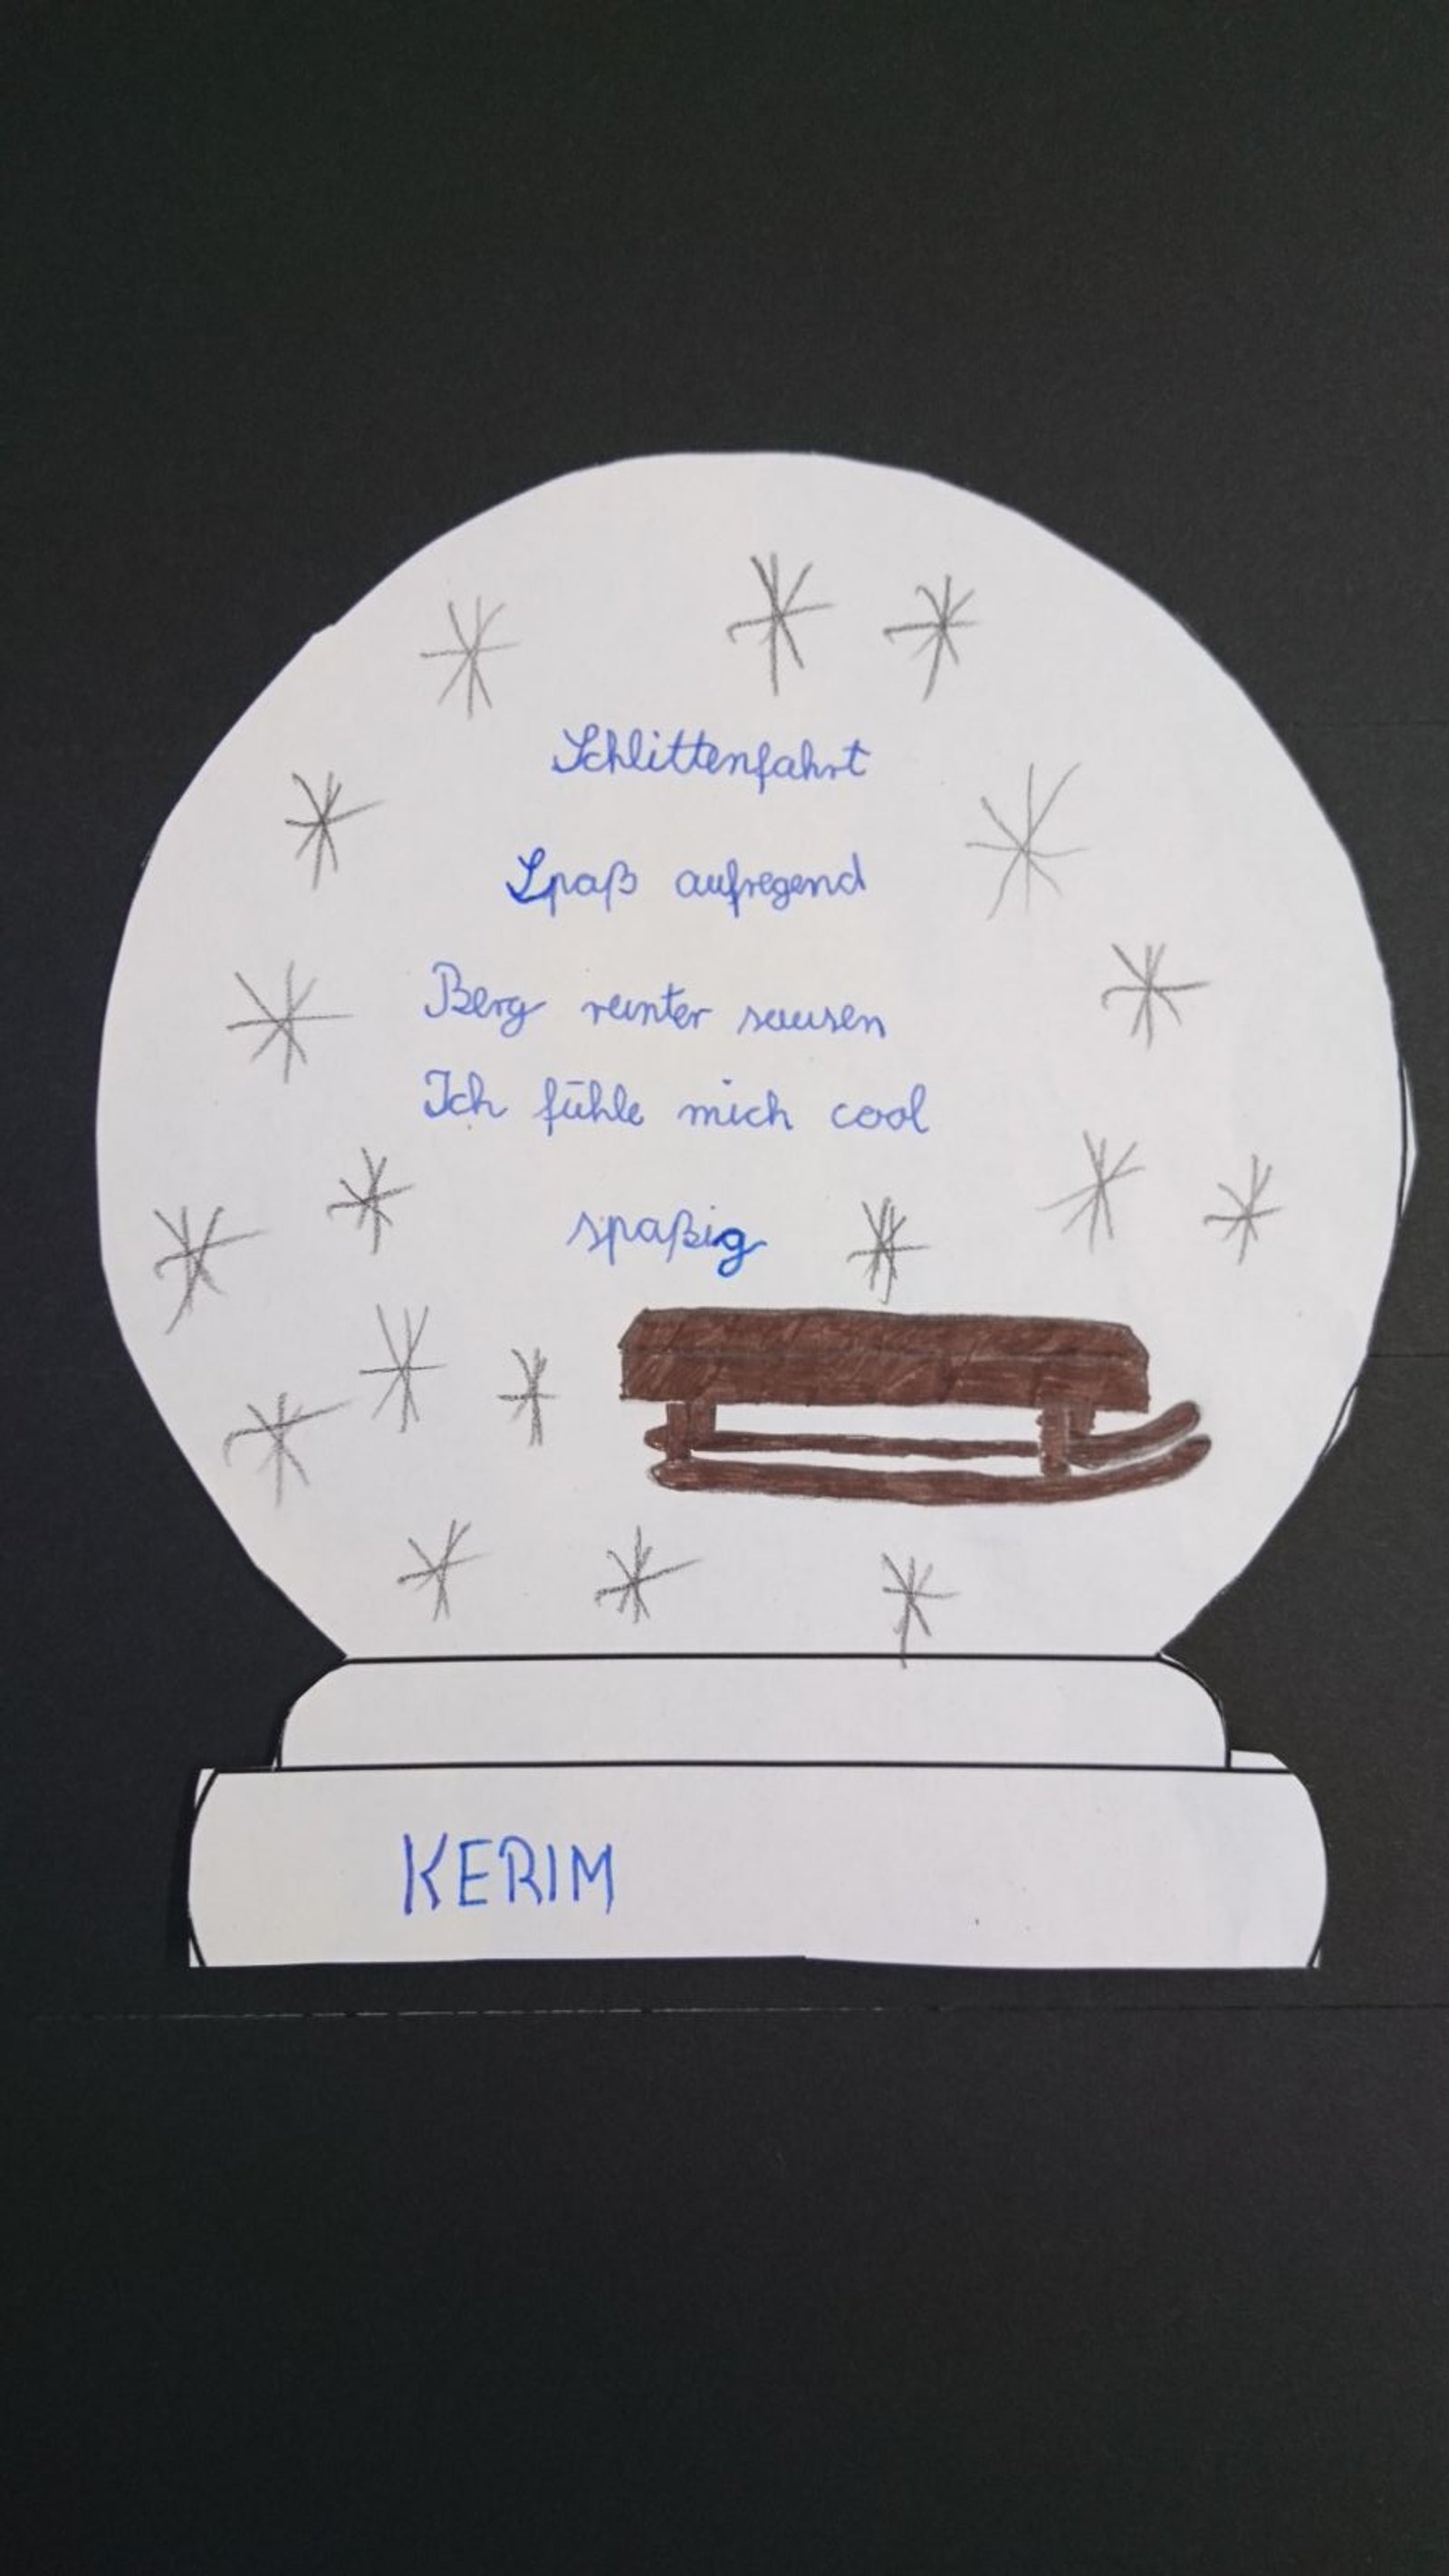 Schlittenfahrt
Spaß aufregend
Berg runter sausen
Ich fühle mich cool
spaßig
KERIM